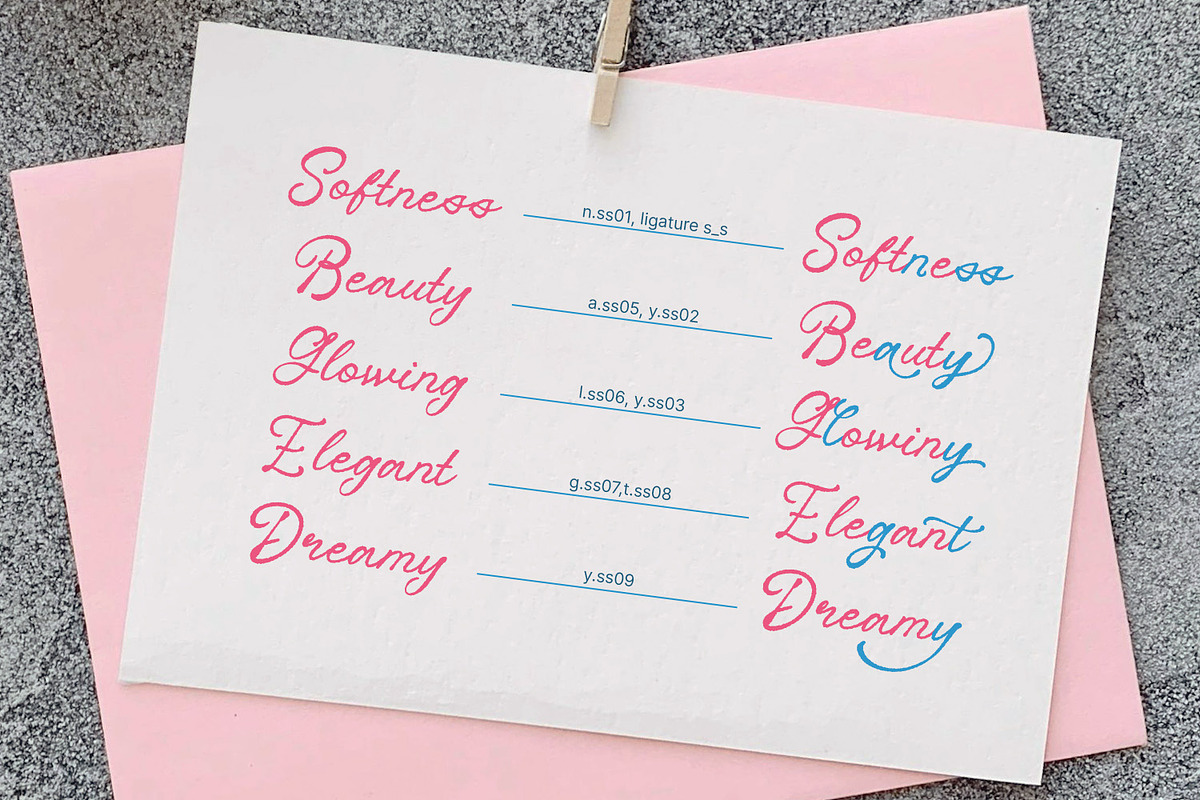 Softness n.ss01, ligature s_s Softness
Beauty a.ss05, y.ss02 Beauty
Glowing l.ss06, y.ss03 Glowiny
Elegant g.ss07,t.ss08 Elegant
Dreamy y.ss09 Dreamy